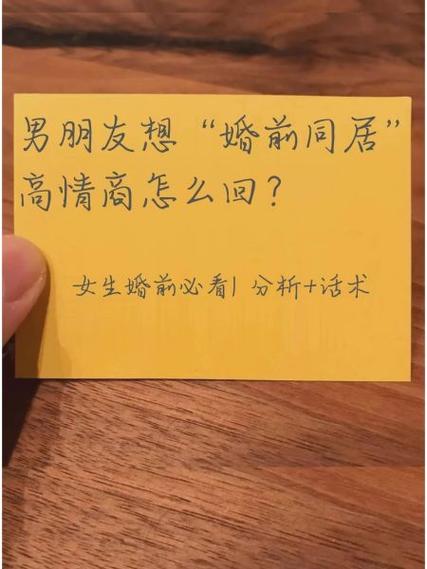 男朋友想“婚前同居”
高情商怎么回？
女生婚前必看| 分析+话术